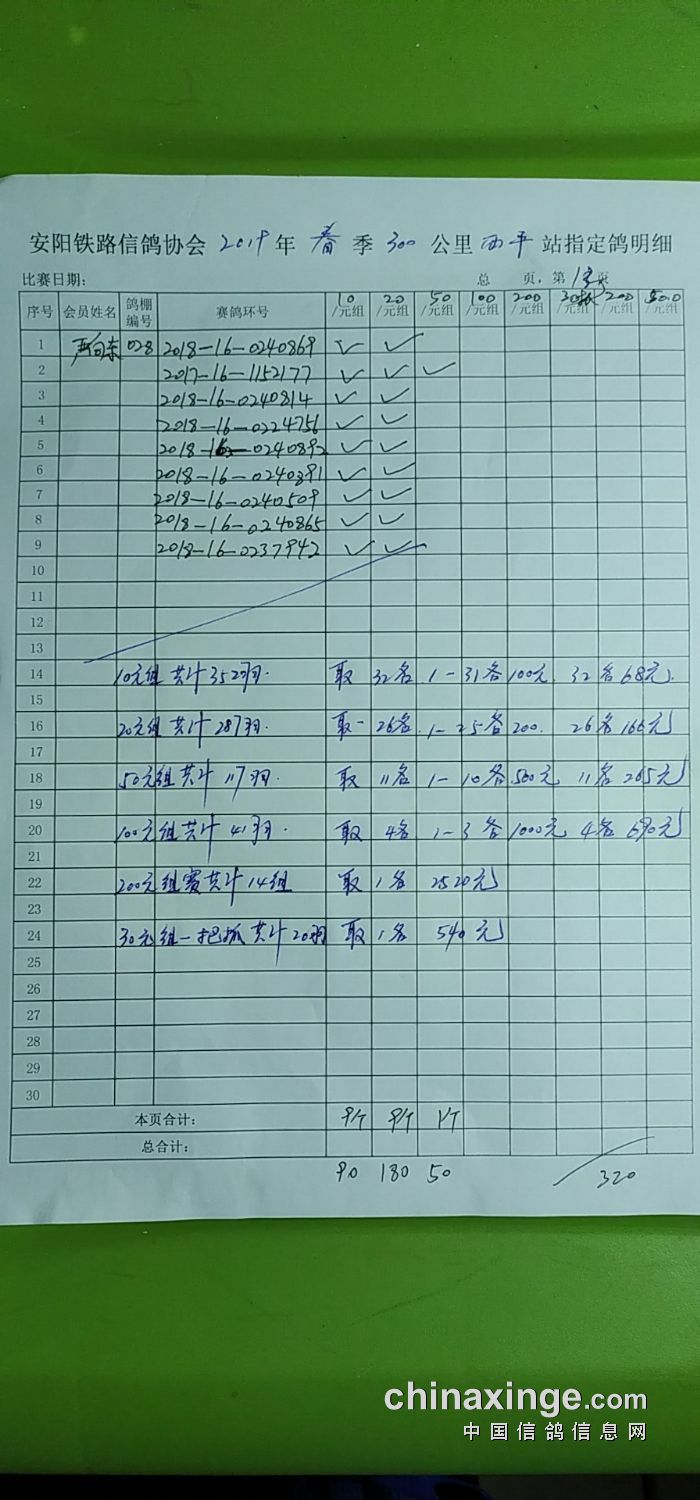 安阳铁路信鸽协会 2019 年 春 季 300 公里 西平 站指定鸽明细
比赛日期: 总 页, 第 13 页
序号 会员姓名 鸽棚编号 赛鸽环号 10/元组 20/元组 50/元组 100/元组 200/元组 30抓/元组 200/元组 500/元组
1 028 2018-16-0240869 ✓ ✓
2 2017-16-1152177 ✓ ✓ ✓
3 2018-16-0240814 ✓ ✓
4 2018-16-0224756 ✓ ✓
5 2018-16-0240892 ✓ ✓
6 2018-16-0240391 ✓ ✓
7 2018-16-0240509 ✓ ✓
8 2018-16-0240865 ✓ ✓
9 2018-16-0237942 ✓ ✓
10
11
12
13
14 10元组 共计352羽. 取 32名 1-31名100元. 32名68元.
15
16 20元组 共计287羽. 取 26名. 1-25名200. 26名166元
17
18 50元组共计117羽. 取 11名 1-10名500元 11名265元
19
20 100元组共计41羽. 取 4名 1-3名1000元 4名690元
21
22 200元组赛共计14组 取1名 2520元
23
24 30元组一把抓共计20羽 取1名 540元
25
26
27
28
29
30
本页合计: 9个 9个 1个
总合计:
90 180 50 320
chinaxinge.com
中国信鸽信息网